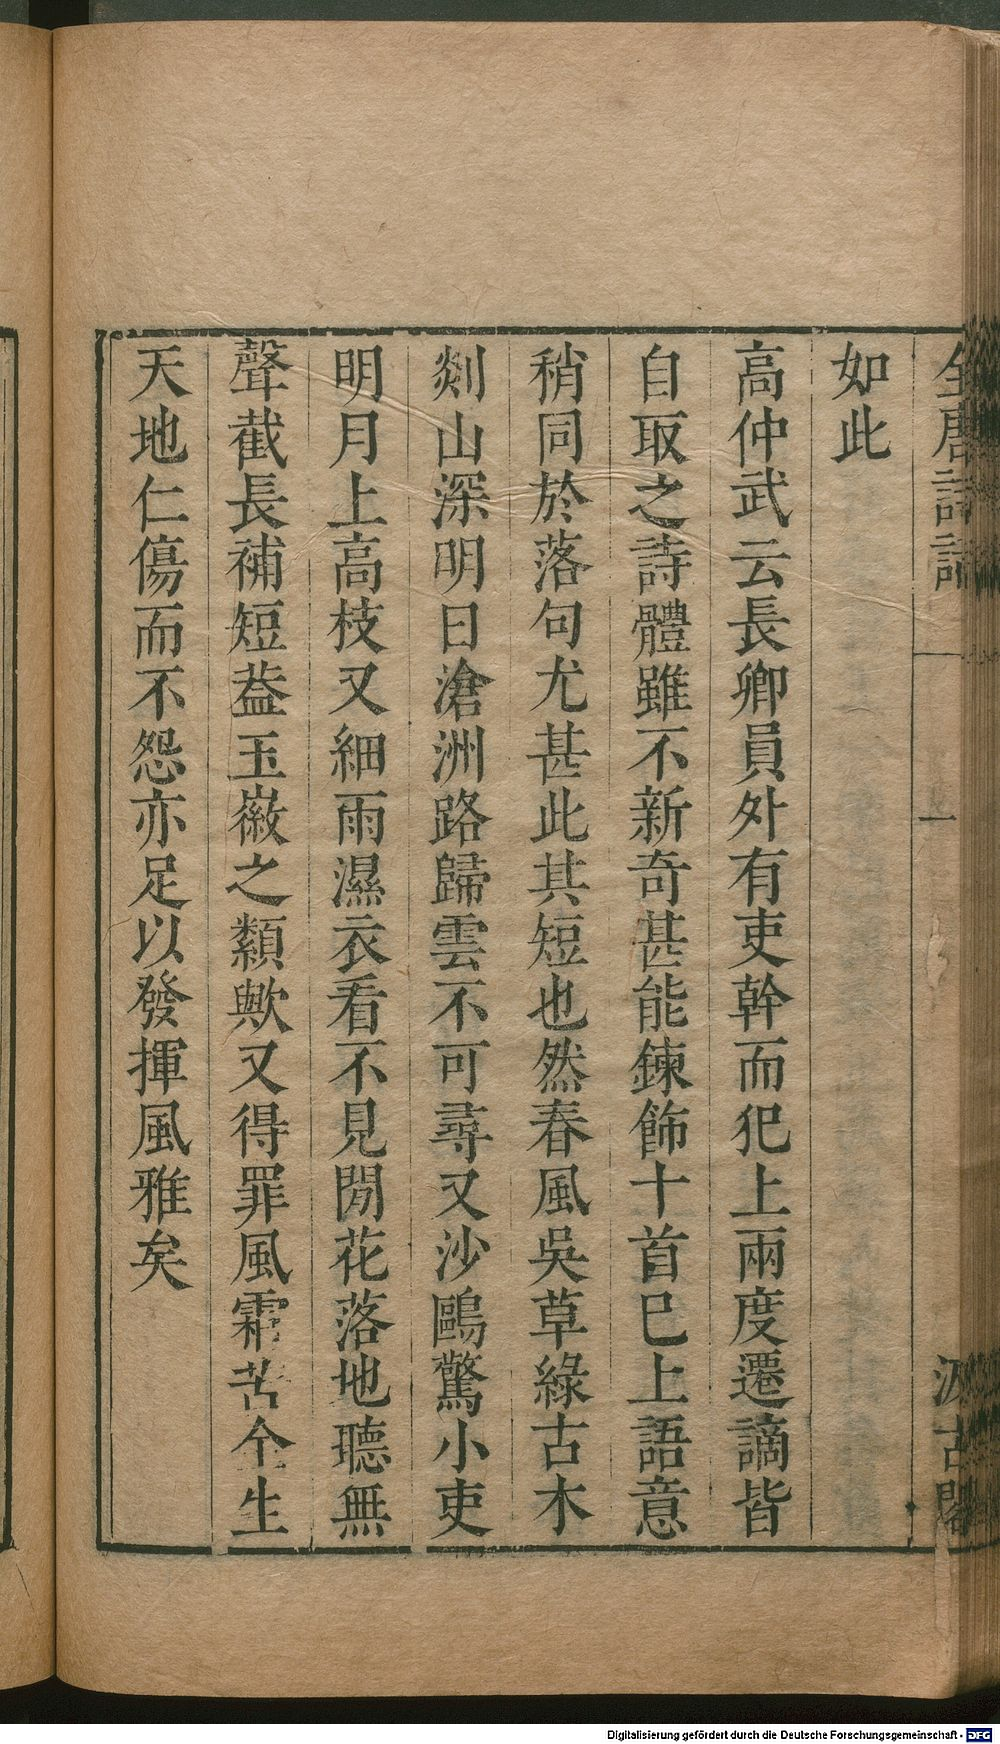 全唐詩話
一
汲古閣
如此
高仲武云長卿員外有吏幹而犯上兩度遷謫皆
自取之詩體雖不新奇甚能鍊飾十首已上語意
稍同於落句尤甚此其短也然春風吳草綠古木
剡山深明日滄洲路歸雲不可尋又沙鷗驚小吏
明月上高枝又細雨濕衣看不見閒花落地聽無
聲截長補短葢玉徽之纇歟又得罪風霜苦全生
天地仁傷而不怨亦足以發揮風雅矣
Digitalisierung gefördert durch die Deutsche Forschungsgemeinschaft - DFG